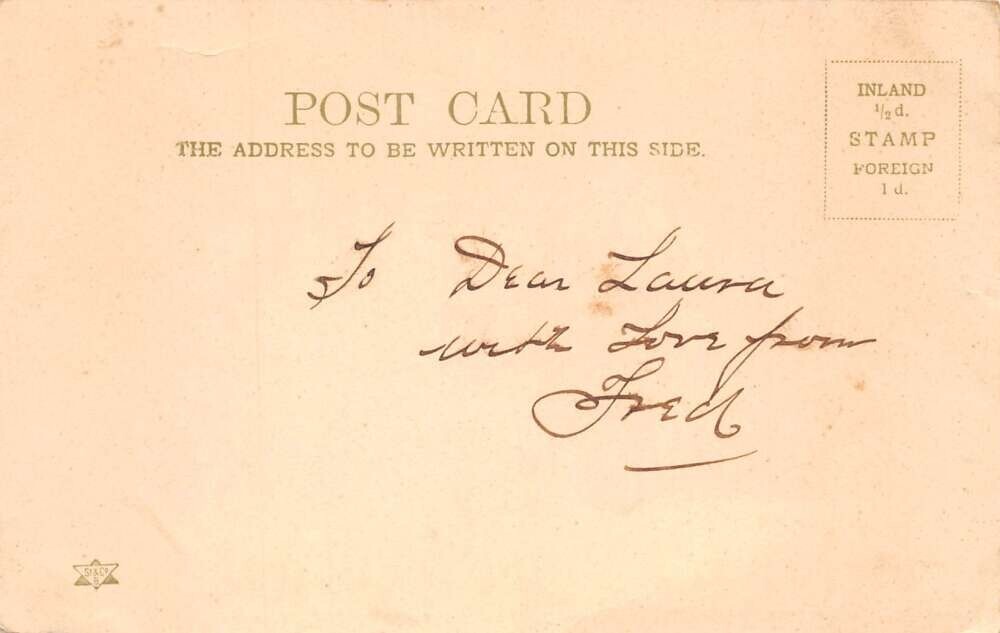 POST CARD
THE ADDRESS TO BE WRITTEN ON THIS SIDE.
INLAND
½ d.
STAMP
FOREIGN
1 d.
To Dear Laura
with Love from
Fred
St & Co
B